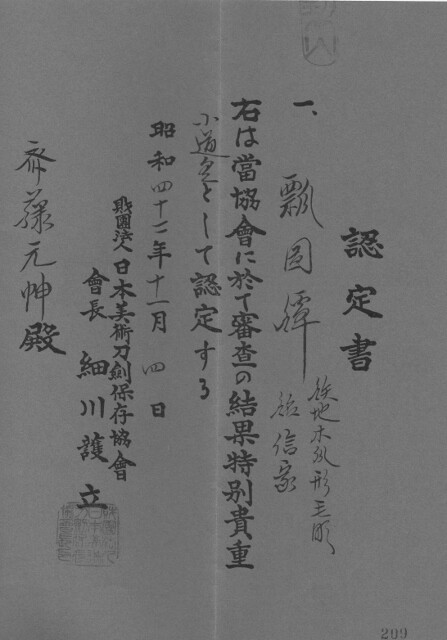 認定書
一、瓢図鐔 鉄地木瓜形毛彫
銘信家
右は當協會に於て審査の結果特別貴重
小道具として認定する
昭和四十二年十一月四日
財團法人日本美術刀劍保存協會
會長 細川護立
齊藤元帥殿
209